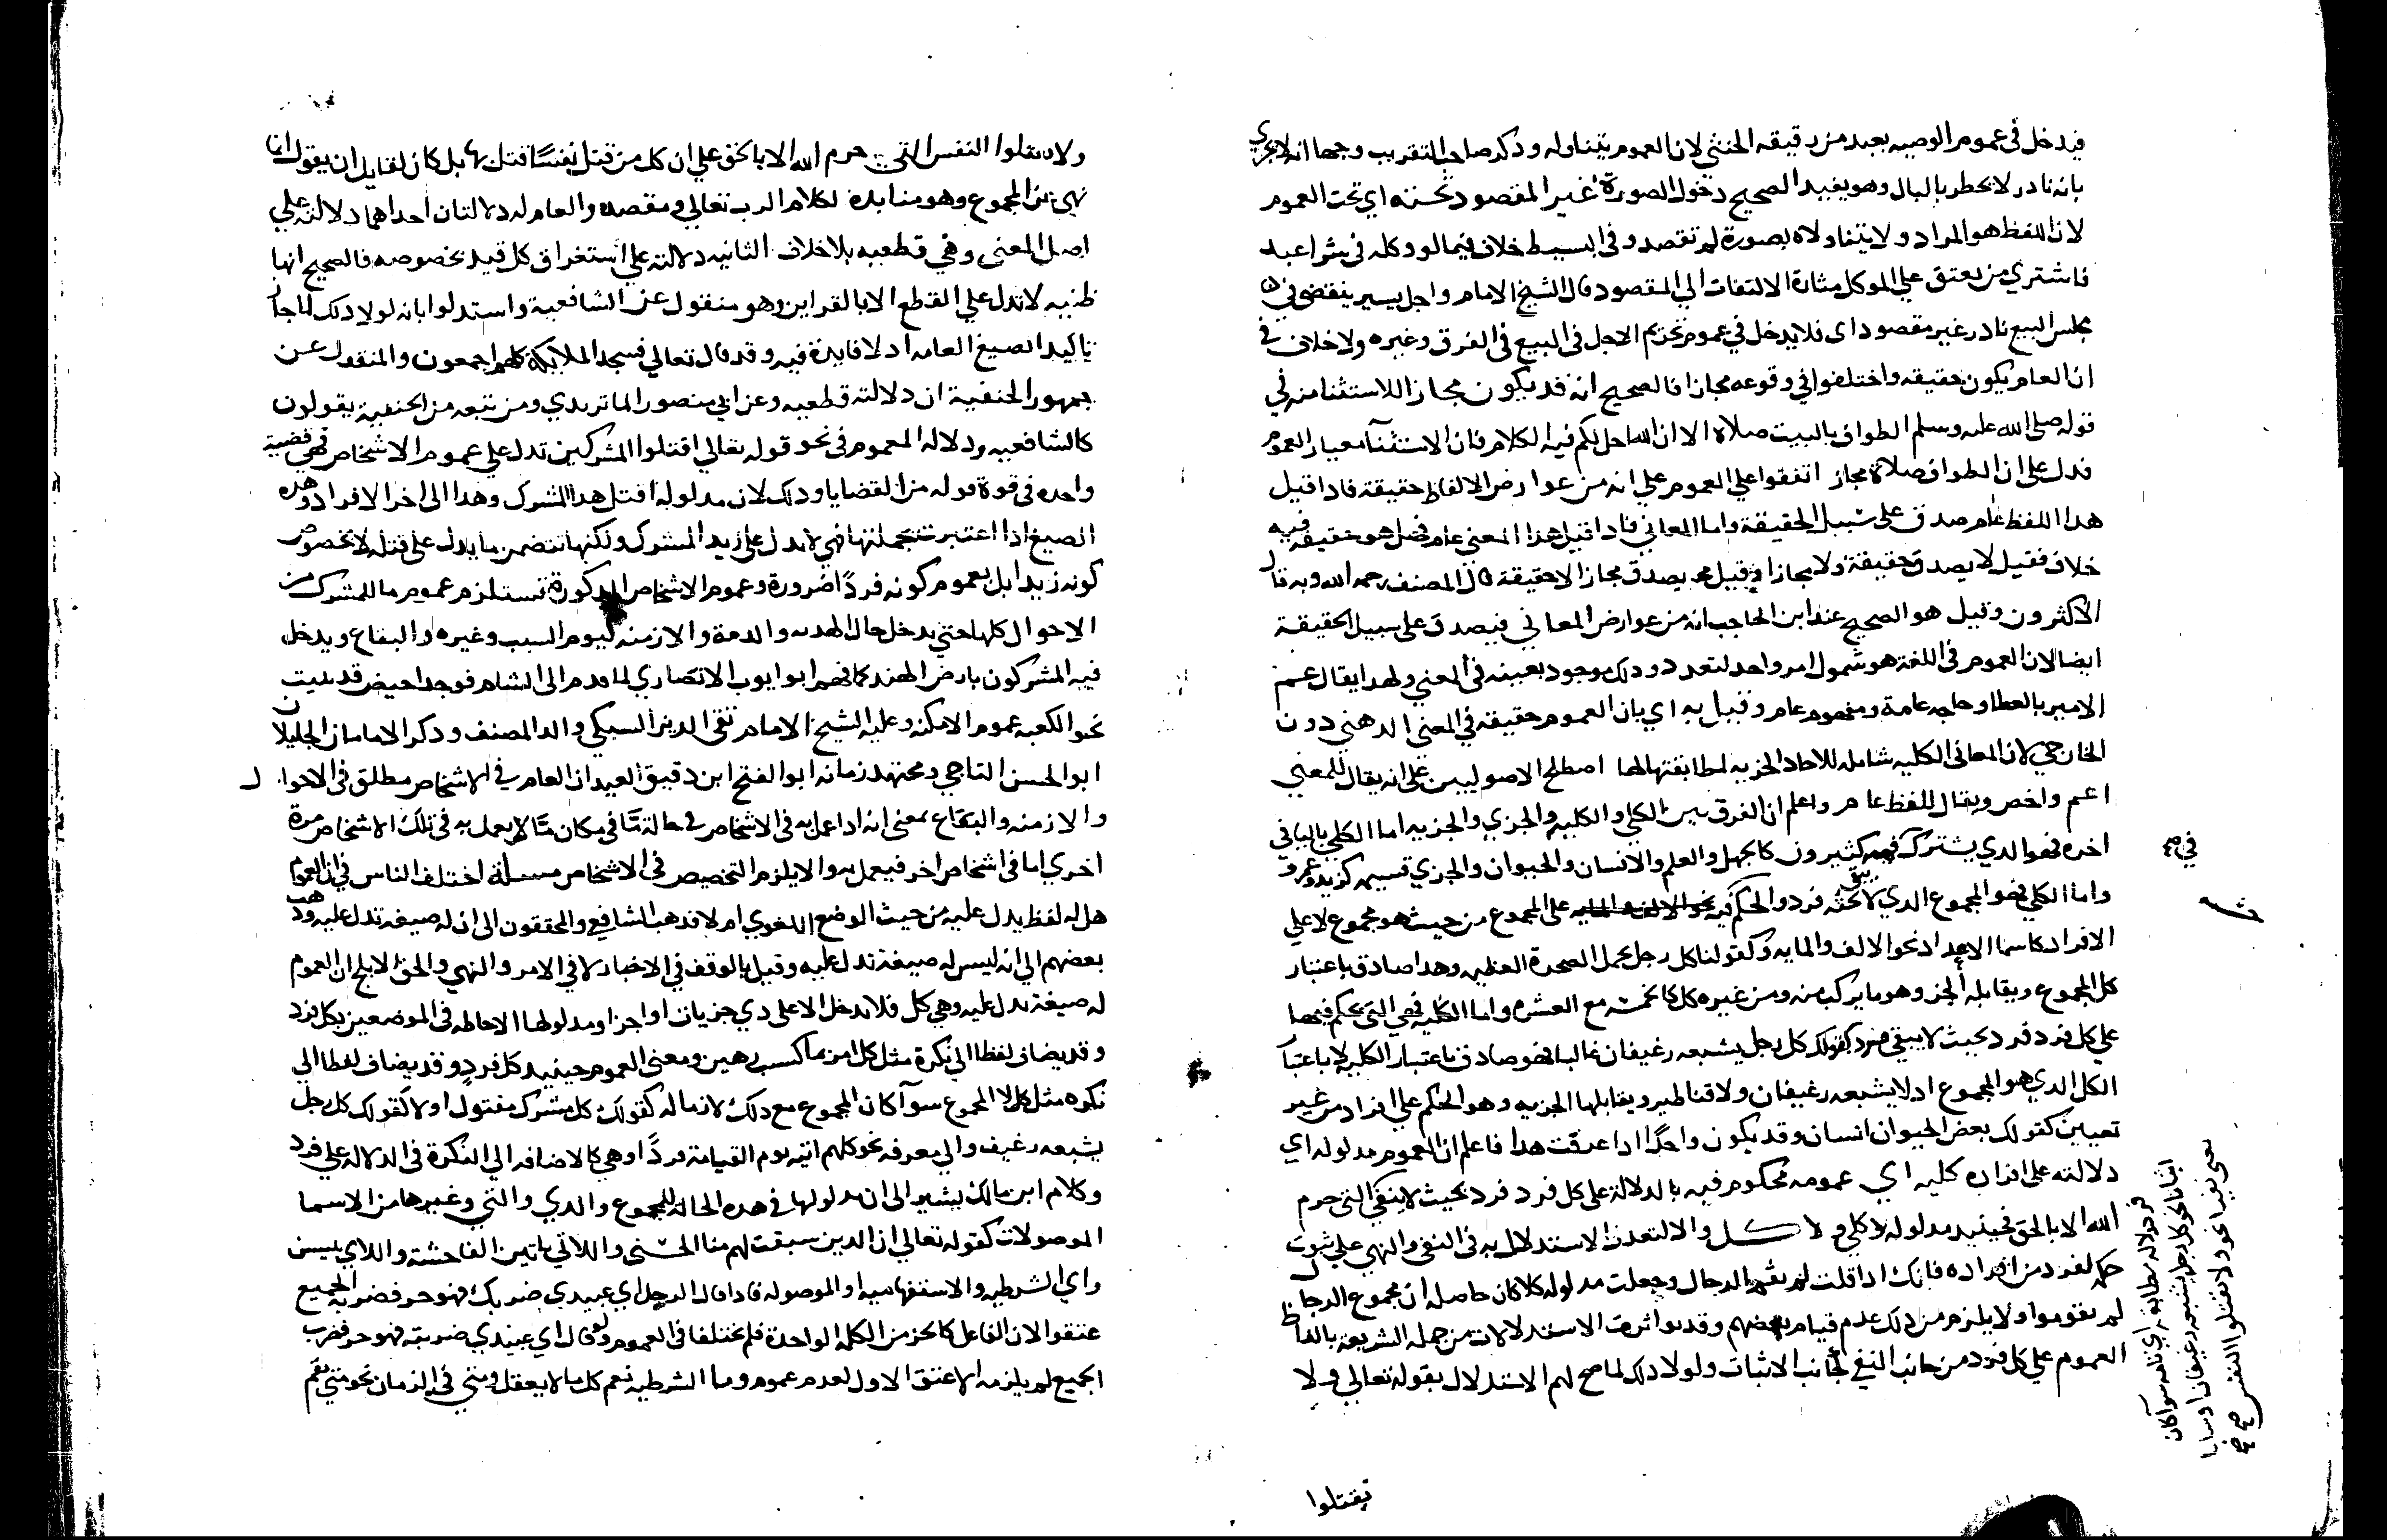 فيدخل في عموم الوصيه بعبد من رقيقه الخنثي لان العموم يتناوله وذكر صاحب التقريب وجها انه لا يجزي
بانه نادر لا يخطر بالبال وهو يفيد الصحيح دخول الصورة غير المقصودة تحته اي تحت العموم
لان اللفظ هو المراد ولا يتناولاه بصورة لم تقصد وفي البسيط خلاف فيما لو وكله في شرا عبد
فاشتري من يعتق علي الموكل مثارة الالتفات الي المقصود قال الشيخ الامام واجل يسير ينقضي في
مجلس البيع نادر غير مقصود اي فلا يدخل في عموم تحريم الاجل في البيع في الفرق وغيره ولا خلاف في
ان العام يكون حقيقه واختلفوا في وقوعه مجازا فالصحيح انه قد يكون مجازا للاستثنا منه في
قوله صلي الله عليه وسلم الطواف بالبيت صلاة الا ان الله احل لكم فيه الكلام فان الاستثنآ معيار العموم
فدل علي ان الطواف صلاة مجاز اتفقوا علي العموم علي انه من عوارض الالفاظ حقيقة فاذا قيل
هذا اللفظ عام صدق علي سبيل الحقيقة واما المعاني فاذا قيل هذا المعني عام فهل هو حقيقه فيه
خلاف فقيل لا يصدق حقيقة ولا مجازا وقيل يصدق مجازا لا حقيقة قال المصنف رحمه الله وبه قال
الاكثرون وقيل هو الصحيح عند ابن الحاجب انه من عوارض المعاني فيصدق علي سبيل الحقيقة
ايضا لان العموم في اللغة هو شمول امر واحد لمتعدد وذلك موجود بعينه في المعني ولهذا يقال عم
الامير بالعطا وحاجه عامة ومفهوم عام وقيل به اي بان العموم حقيقه في المعني الذهني دون
الخارجي لان المعاني الكليه شامله للاحاد الجزيه لمطابقتها لها اصطلح الاصوليين علي انه يقال للمعني
اعم واخص ويقال للفظ عام واعلم ان الفرق بين الكلي والكليه والجزي والجزيه اما الكلي باليا في
اخره فهو الذي يشترك فيه كثيرون كالجهل والعلم والانسان والحيوان والجزي قسيمه كزيد وعمرو
واما الكل فهو المجموع الذي لا يبقي تحته فرد والحكم فيه علي المجموع من حيث هو مجموع لا علي
الافراد كاسما الاعداد نحو الالف والمايه وكقولنا كل رجل يحمل الصخرة العظيمه وهذا صادق باعتبار
كل المجموع ويقابله الجز وهو ما يركب منه ومن غيره كل كالخمسة مع العشره واما الكليه فهي التي يحكم فيها
علي كل فرد فرد بحيث لا يبقي فرد كقولك كل رجل يشبعه رغيفان غالبا فهو صادق باعتبار الكليه لا باعتبار
الكل الذي هو المجموع اذ لا يشبعه رغيفان ولا قناطير ويقابلها الجزيه وهو الحكم علي افراد من غير
تعيين كقولك بعض الحيوان انسان وقد يكون واحدًا اذا عرفت هذا فاعلم ان العموم مدلوله اي
دلالته علي افراده كليه اي عمومه محكوم فيه بالدلالة علي كل فرد فرد بحيث لا يبقي التي حرم
الله الا بالحق فحينيد مدلوله لا كلي ولا كل والا لتعذر الاستدلال به في النفي والنهي علي ثبوت
حكمه لفرد من افراده فانك اذا قلت لم يقم الرجال وجعلت مدلوله كلا كان حاصله ان مجموع الرجال
لم يقوموا ولا يلزم من ذلك عدم قيام بعضهم وقد تواترت الاستدلالات من جمله الشريعه بالفاظ
العموم علي كل فرد من جانب النفي لجانب الاثبات ولولا ذلك لما صح لهم الاستدلال بقوله تعالي ولا
تقتلوا
فرد دلاله مطابقه اي تامه سوآ كان
اثباتا نحو كل رجل يشبعه رغيفان او سلبا
معني نفيا نحو لا تقتلوا النفس صح صح
ولا تقتلوا النفس التي حرم الله الا بالحق علي ان كل من قتل نفسًا قتل بها بل كان لقايل ان يقول انما
نهي عن المجموع وهو منابذة لكلام الرب تعالي ومقصده والعام له دلالتان احداهما دلالته علي
اصل المعني وهي قطعيه بلا خلاف الثانيه دلالته علي استغراق كل فيد بخصوصه فالصحيح انها
ظنيه لا تدل علي القطع الا بالقراين وهو منقول عن الشافعية واستدلوا بانه لولا ذلك لما جاز
تاكيد الصيغ العامه اذ لا فايدة فيه وقد قال تعالي فسجد الملايكة كلهم اجمعون والمنقول عن
جمهور الحنفية ان دلالته قطعيه وعن ابي منصور الماتريدي ومن تبعه من الحنفية يقولون
كالشافعيه ودلاله العموم في نحو قوله تعالي اقتلوا المشركين تدل علي عموم الاشخاص فهي قضية
واحده في قوة قوله من القضايا وذلك لان مدلوله اقتل هذا المشرك وهذا الي اخر الافراد وهذه
الصيغ اذا اعتبرت بجملتها فهي لا تدل علي زيد المشرك ولكنها تتضمن ما يدل علي قتله لا بخصوص
كونه زيدا بل بعموم كونه فردًا ضرورة وعموم الاشخاص المذكورة تستلزم عموم ما للمشرك من
الاحوال كلها حتي يدخل حال الهدنه والذمة والازمنه ليوم السبت وغيره والبقاع ويدخل
فيه المشركون بارض الهند كما فهم ابو ايوب الانصاري لما قدم الي الشام فوجد مراحيض قد بنيت
نحو الكعبه عموم الامكنه وعليه الشيخ الامام تقي الدين السبكي والد المصنف وذكر الامامان الجليلان
ابو الحسن الباجي ومجتهد زمانه ابو الفتح ابن دقيق العيد ان العام في الاشخاص مطلق في الاحوال
والازمنه والبقاع بمعني انه اذا عمل به في الاشخاص في حالة مّا في مكان مّا لا يعمل به في تلك الاشخاص مرة
اخري اما في اشخاص اخر فيعمل به والا يلزم التخصيص في الاشخاص مسـلة اختلف الناس في ان العموم
هل له لفظ يدل عليه من حيث الوضع اللغوي ام لا فذهب الشافعي والمحققون الي ان له صيغه تدل عليه وذهب
بعضهم الي انه ليس له صيغة تدل عليه وقيل بالوقف في الاخبار لا في الامر والنهي والحق الابلج ان العموم
له صيغة تدل عليه وهي كل فلا تدخل الا علي ذي جزيات او اجزا ومدلولها الاحاطه في الموضعين بكل فرد
وقد يضاف لفظا الي نكرة مثل كل امرئ بما كسب رهين ومعني العموم حينيد كل فرد وقد يضاف لفظا الي
نكره مثل كل لا المجموع سوآ كان المجموع مع ذلك لازما له كقولك كل مشرك مقتول او لا كقولك كل رجل
يشبعه رغيف والي معرفه نحو كلهم اتيه يوم القيامة فردًا وهي كالاضافه الي النكرة في الدلاله علي فرد
وكلام ابن مالك يشير الي ان مدلولها في هذه الحاله المجموع والذي والتي وغيرها من الاسما
الموصولات كقوله تعالي ان الذين سبقت لهم منا الحسني واللاتي ياتين الفاحشة واللاي ييسن
واي الشرطيه والاستفهاميه او الموصوله فاذا قال الرجل اي عبيدي ضربك فهو حر فضربه الجميع
عتقوا لان الفاعل كالجز من الكلمه الواحدة فلم يختلفا في العموم ولو قال اي عبيدي ضربته فهو حر فضرب
الجميع لم يلزمه الا عتق الاول لعدم عموم وما الشرطيه نعم كل ما لا يعقل ومتي في الزمان نحو متي يقم